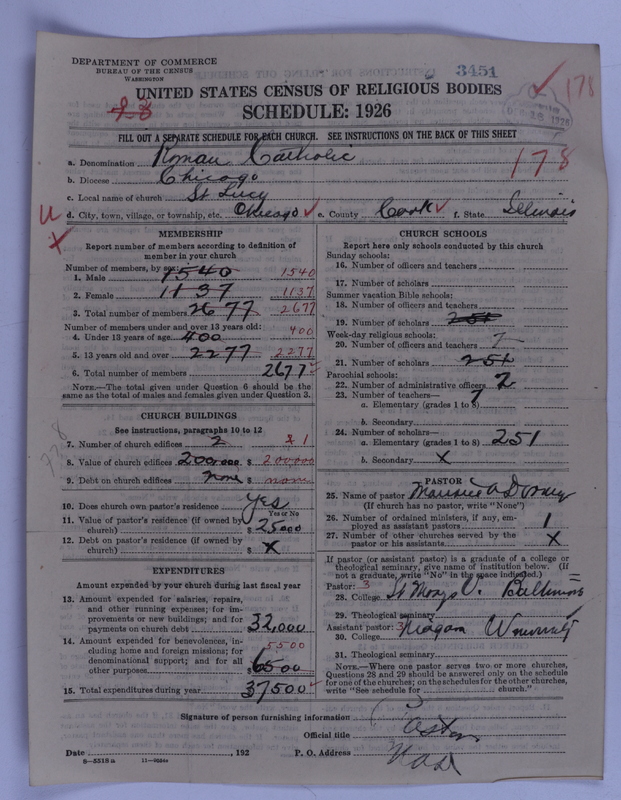 DEPARTMENT OF COMMERCE
BUREAU OF THE CENSUS
WASHINGTON
3451
178
UNITED STATES CENSUS OF RELIGIOUS BODIES
SCHEDULE: 1926
FILL OUT A SEPARATE SCHEDULE FOR EACH CHURCH. SEE INSTRUCTIONS ON THE BACK OF THIS SHEET
178
a. Denomination Roman Catholic
b. Diocese Chicago
c. Local name of church St Lucy
d. City, town, village, or township, etc. Chicago e. County Cook f. State Illinois
MEMBERSHIP
Report number of members according to definition of
member in your church
Number of members, by sex:
1. Male 1540 1540
2. Female 1137 1137
3. Total number of members 2677 2677
Number of members under and over 13 years old:
4. Under 13 years of age 400 400
5. 13 years old and over 2277 2277
6. Total number of members 2677
NOTE.—The total given under Question 6 should be the
same as the total of males and females given under Question 3.
CHURCH BUILDINGS
See instructions, paragraphs 10 to 12
7. Number of church edifices 2 1
8. Value of church edifices 200,000 $ 200000
9. Debt on church edifices none $ none
10. Does church own pastor's residence Yes
Yes or No
11. Value of pastor's residence (if owned by
church) $ 25000
12. Debt on pastor's residence (if owned by
church) $ X
EXPENDITURES
Amount expended by your church during last fiscal year
13. Amount expended for salaries, repairs,
and other running expenses; for im-
provements or new buildings; and for
payments on church debt $ 32,000
14. Amount expended for benevolences, in-
cluding home and foreign missions; for
denominational support; and for all
other purposes 5500 $ 6500
15. Total expenditures during year $ 37500
CHURCH SCHOOLS
Report here only schools conducted by this church
Sunday schools:
16. Number of officers and teachers
17. Number of scholars
Summer vacation Bible schools:
18. Number of officers and teachers
19. Number of scholars 251
Week-day religious schools:
20. Number of officers and teachers 7
21. Number of scholars 251
Parochial schools:
22. Number of administrative officers 2
23. Number of teachers—
a. Elementary (grades 1 to 8) 7
b. Secondary
24. Number of scholars—
a. Elementary (grades 1 to 8) 251
b. Secondary X
PASTOR
25. Name of pastor Maurice A Dorney
(If church has no pastor, write "None")
26. Number of ordained ministers, if any, em-
ployed as assistant pastors 1
27. Number of other churches served by the
pastor or his assistants X
If pastor (or assistant pastor) is a graduate of a college or
theological seminary, give name of institution below. (If
not a graduate, write "No" in the space indicated.)
Pastor: 3
28. College St Marys U. Baltimore
29. Theological seminary
Assistant pastor: 3
30. College Niagara University
31. Theological seminary
NOTE.—Where one pastor serves two or more churches,
Questions 28 and 29 should be answered only on the schedule
for one of the churches; on the schedules for the other churches,
write "See schedule for church."
Signature of person furnishing information
Official title
Date , 192 P. O. Address
8—5518a 11—9034